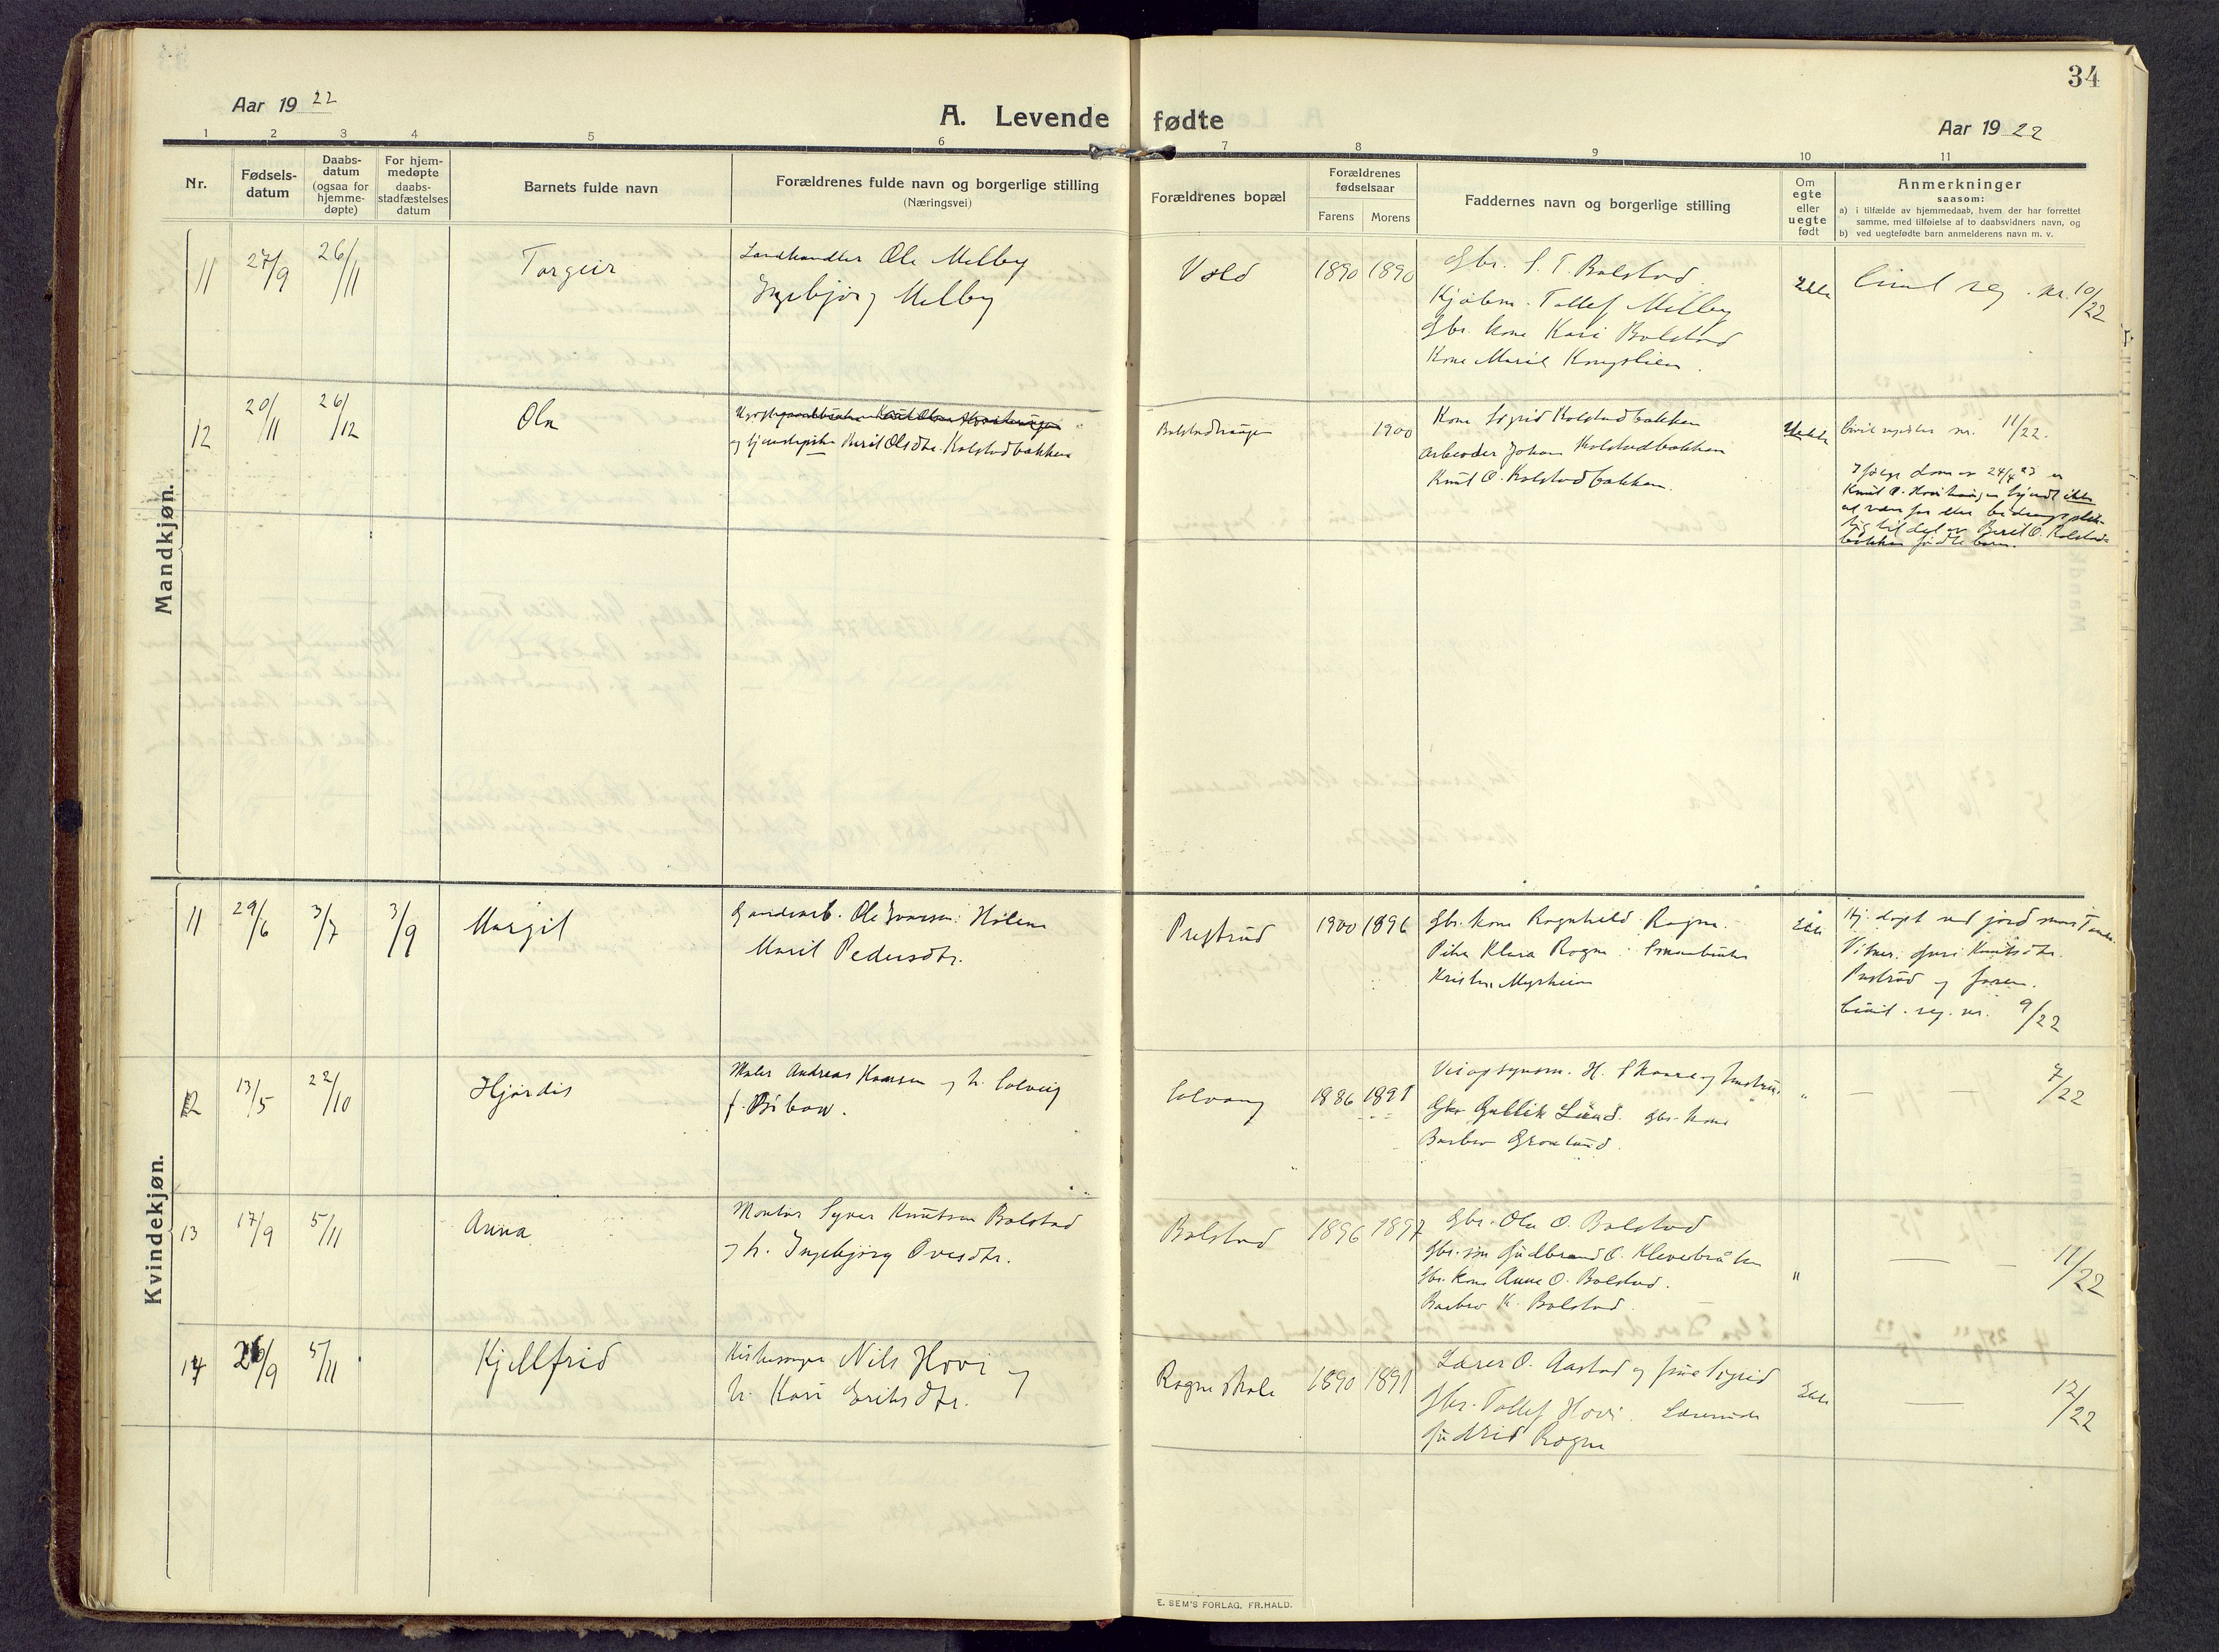 34
Aar 19 22
A. Levende fødte
Aar 19 22
1 2 3 4 5 6 7 8 9 10 11
Nr.
Fødsels-
datum
Daabs-
datum
(ogsaa for
hjemme-
døpte)
For hjem-
medøpte
daabs-
stadfæstelses
datum
Barnets fulde navn
Forældrenes fulde navn og borgerlige stilling
(Næringsvei)
Forældrenes bopæl
Forældrenes
fødselsaar
Farens Morens
Faddernes navn og borgerlige stilling
Om
egte
eller
uegte
født
Anmerkninger
saasom:
a) i tilfælde av hjemmedaab, hvem der har forrettet
samme, med tilføielse af to daabsvidners navn, og
b) ved uegtefødte barn anmelderens navn m. v.
Mandkjøn.
11 27/9 26/11 Torgeir
Landhandler Ole Melby
Ingebjørg Melby
Vold 1890 1890
Gbr. S. T. Bolstad.
Kjøbm. Tollef Melby
Gbr. kone Kari Bolstad
Kone Marit Kongslien.
Ekte
Civil reg. nr. 10/22
12 20/11 26/12 Ola
og tjenestepike Berit Olsdtr. Kolstadbakken
Bolstadhaugen 1900
Kone Sigrid Kolstadbakken
Arbeider Johan Kolstadbakken
Knut O. Kolstadbakken.
Uekte
Civil register nr. 11/22.
Ifølge dom av 24/4 23 er
Knut O. Hovihaugen kjendt ikke
at være far eller bidragsplik-
tig til det av Berit O. Kolstad-
bakken fødte barn.
Kvindekjøn.
11 29/6 3/7 3/9 Margit
Gaardsarb. Ole Ivarsen Hølene
Marit Pedersdtr.
Prestrud 1900 1896
Gbr. kone Ragnhild Rogne.
Pike Klara Rogne. Smaabruker
Kristen Myrheim
Ekte
Hj. døpt ved jordmor
Vitner: Guri Knutsdtr.
Prestrud og faren.
Civil. reg. nr. 9/22
12 13/5 22/10 Hjørdis
Maler Andreas Hansen og h. Solveig
f. Bibow.
Solvang 1886 1891
Veiopsynsm. H. Skaare og hustru.
Gbr Gullik Lund. Gbr. kone
Barbro Grønlund.
" — — 7/22
13 17/9 5/11 Anna
Montør Syver Knutson Bolstad
og h. Ingebjørg Ovesdtr.
Bolstad 1896 1897
Gbr. Ole O. Bolstad
Gbr. søn Gudbrand O. Kleverbråten
Gbr. kone Anne O. Bolstad.
Barbro K. Bolstad.
" — — 11/22
14 26/9 5/11 Kjellfrid
Kirkesanger Nils Hovi og
h. Kari Eriksdtr.
Rogne skole 1890 1891
Lærer O. Aastad og frue Sigrid
Gbr. Tollef Hovi. Lærerinde
Gudrid Rogne
Ekte
— 12/22
E. SEM'S FORLAG. FR.HALD.